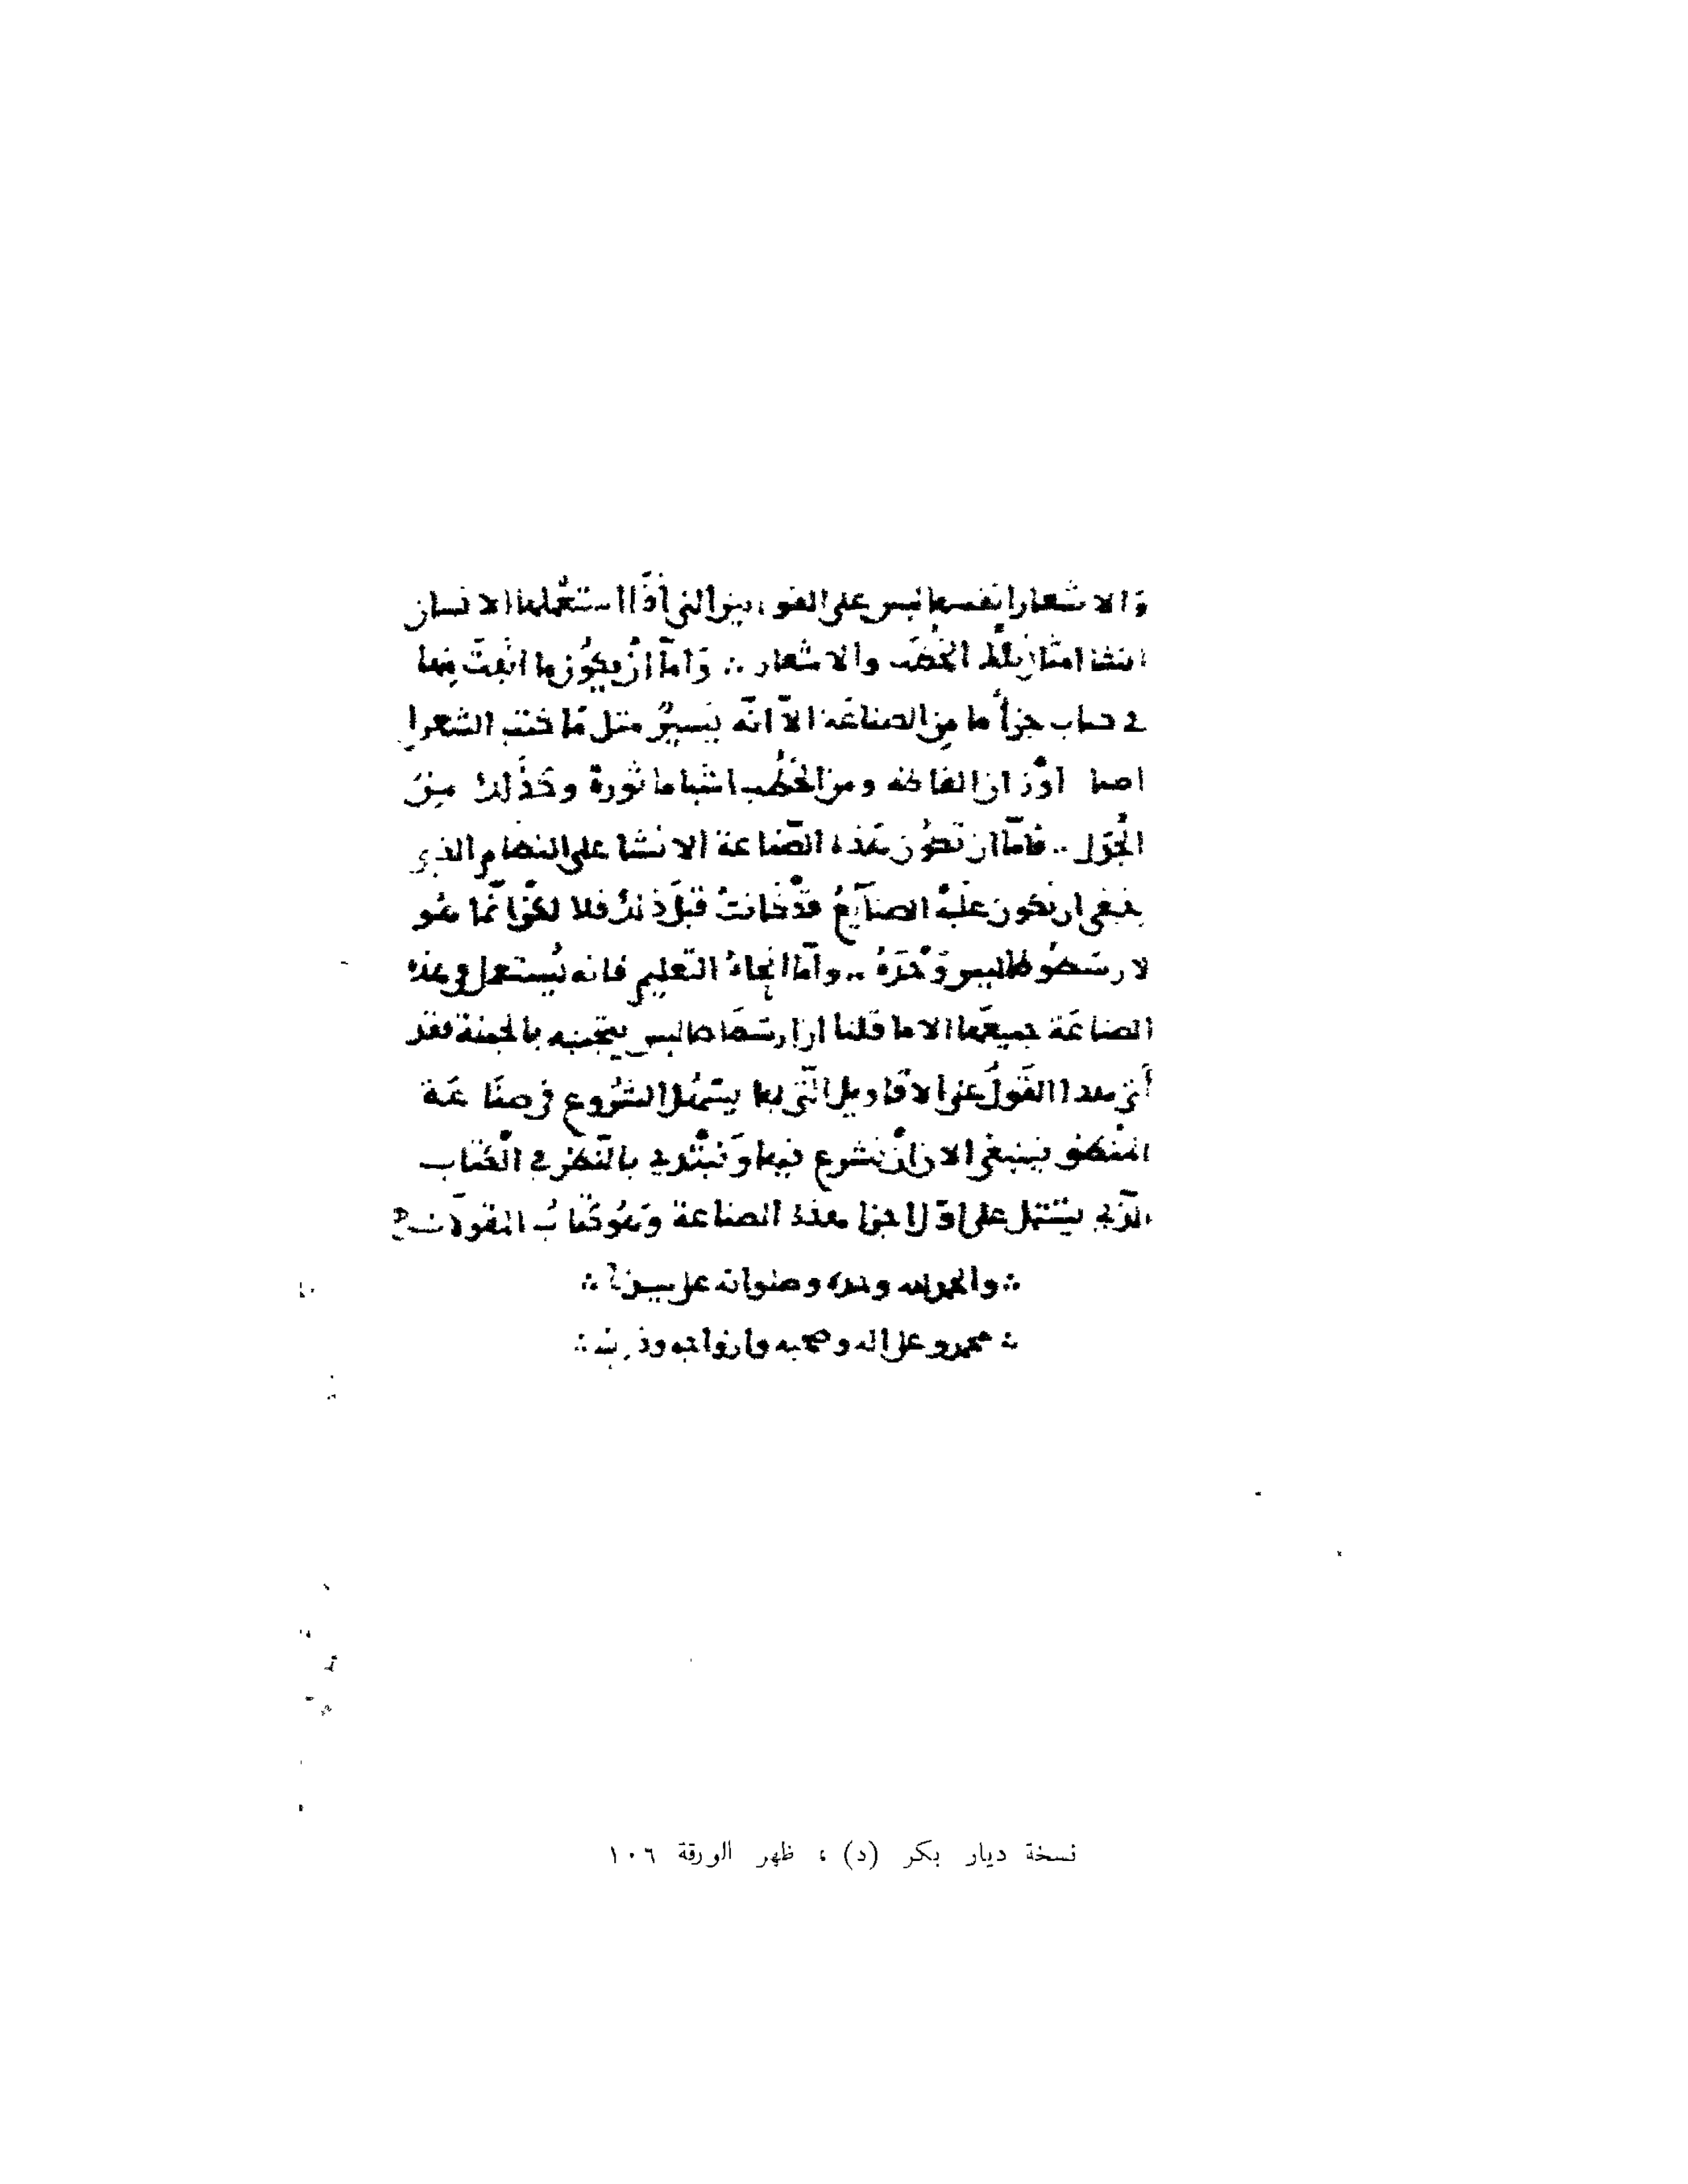 والاشعار انفسها ليس على القوانين التي اذا استعملها الانسان
انشا امثال تلك الخطب والاشعار ∴ واما ان يكون ما اثبت منها
في كتاب جزأ ما من الصناعة الا انه يسير مثل ما كتب الشعرا
اصما اوزان الفا ومن الخطب اشيا ماثورة وكذلك من
الجدل ∴ فاما ان تكون هذه الصناعة الانشا على النظام الذي
ينبغي ان تكون عليه الصنايع قد كانت قبل ذلك فلا لكن انما هو
لارسطوطاليس وحده ∴ واما انحاء التعليم فانه يستعمل في هذه
الصناعة جميعها الا ما قلنا ان ارسطاطاليس يتجنبه بالجملة فقد
أتى هذا القول على الاقاويل التي بها يسهل الشروع في صناعة
المنطق فينبغي الان أن نشرع فيها ونبتدي بالنظر في الكتاب
الذي يشتمل على اول اجزا هذه الصناعة وهو كتاب المقولات
∴ والحمد لله وحده وصلواته على سيدنا ∴
∴ محمد وعلى اله وصحبه وازواجه وذريته ∴
نسخة ديار بكر (د) ، ظهر الورقة ١٠٦